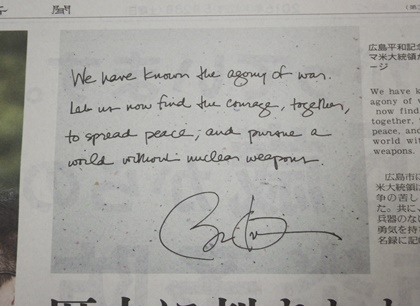 聞
We have known the agony of war.
Let us now find the courage, together,
to spread peace, and pursue a
world without nuclear weapons.
広島平和記念
マ米大統領が
ージ
We have k
agony of w
now find
together,
peace, and
world with
weapons.
広島市に
米大統領は
争の苦し
た。共に、
兵器のな
勇気を持
名録に記